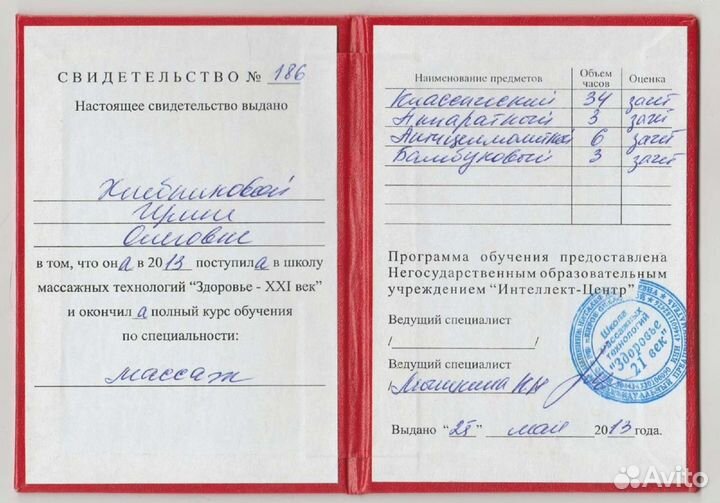 СВИДЕТЕЛЬСТВО № 186
Настоящее свидетельство выдано
Хлебниковой
Ирине
Олеговне
в том, что она в 2013 поступила в школу
массажных технологий “Здоровье - XXI век”
и окончила полный курс обучения
по специальности:
массаж
Наименование предметов Объем часов Оценка
Классический 34 зачёт
Аппаратный 3 зачёт
Антицеллюлитный 6 зачёт
Бамбуковый 3 зачёт
Программа обучения предоставлена
Негосударственным образовательным
учреждением “Интеллект-Центр”
Ведущий специалист
/ /
Ведущий специалист
/
Выдано “25” май 2013 года.
Школа
массажных
технологий
"Здоровье
21 век"
Avito